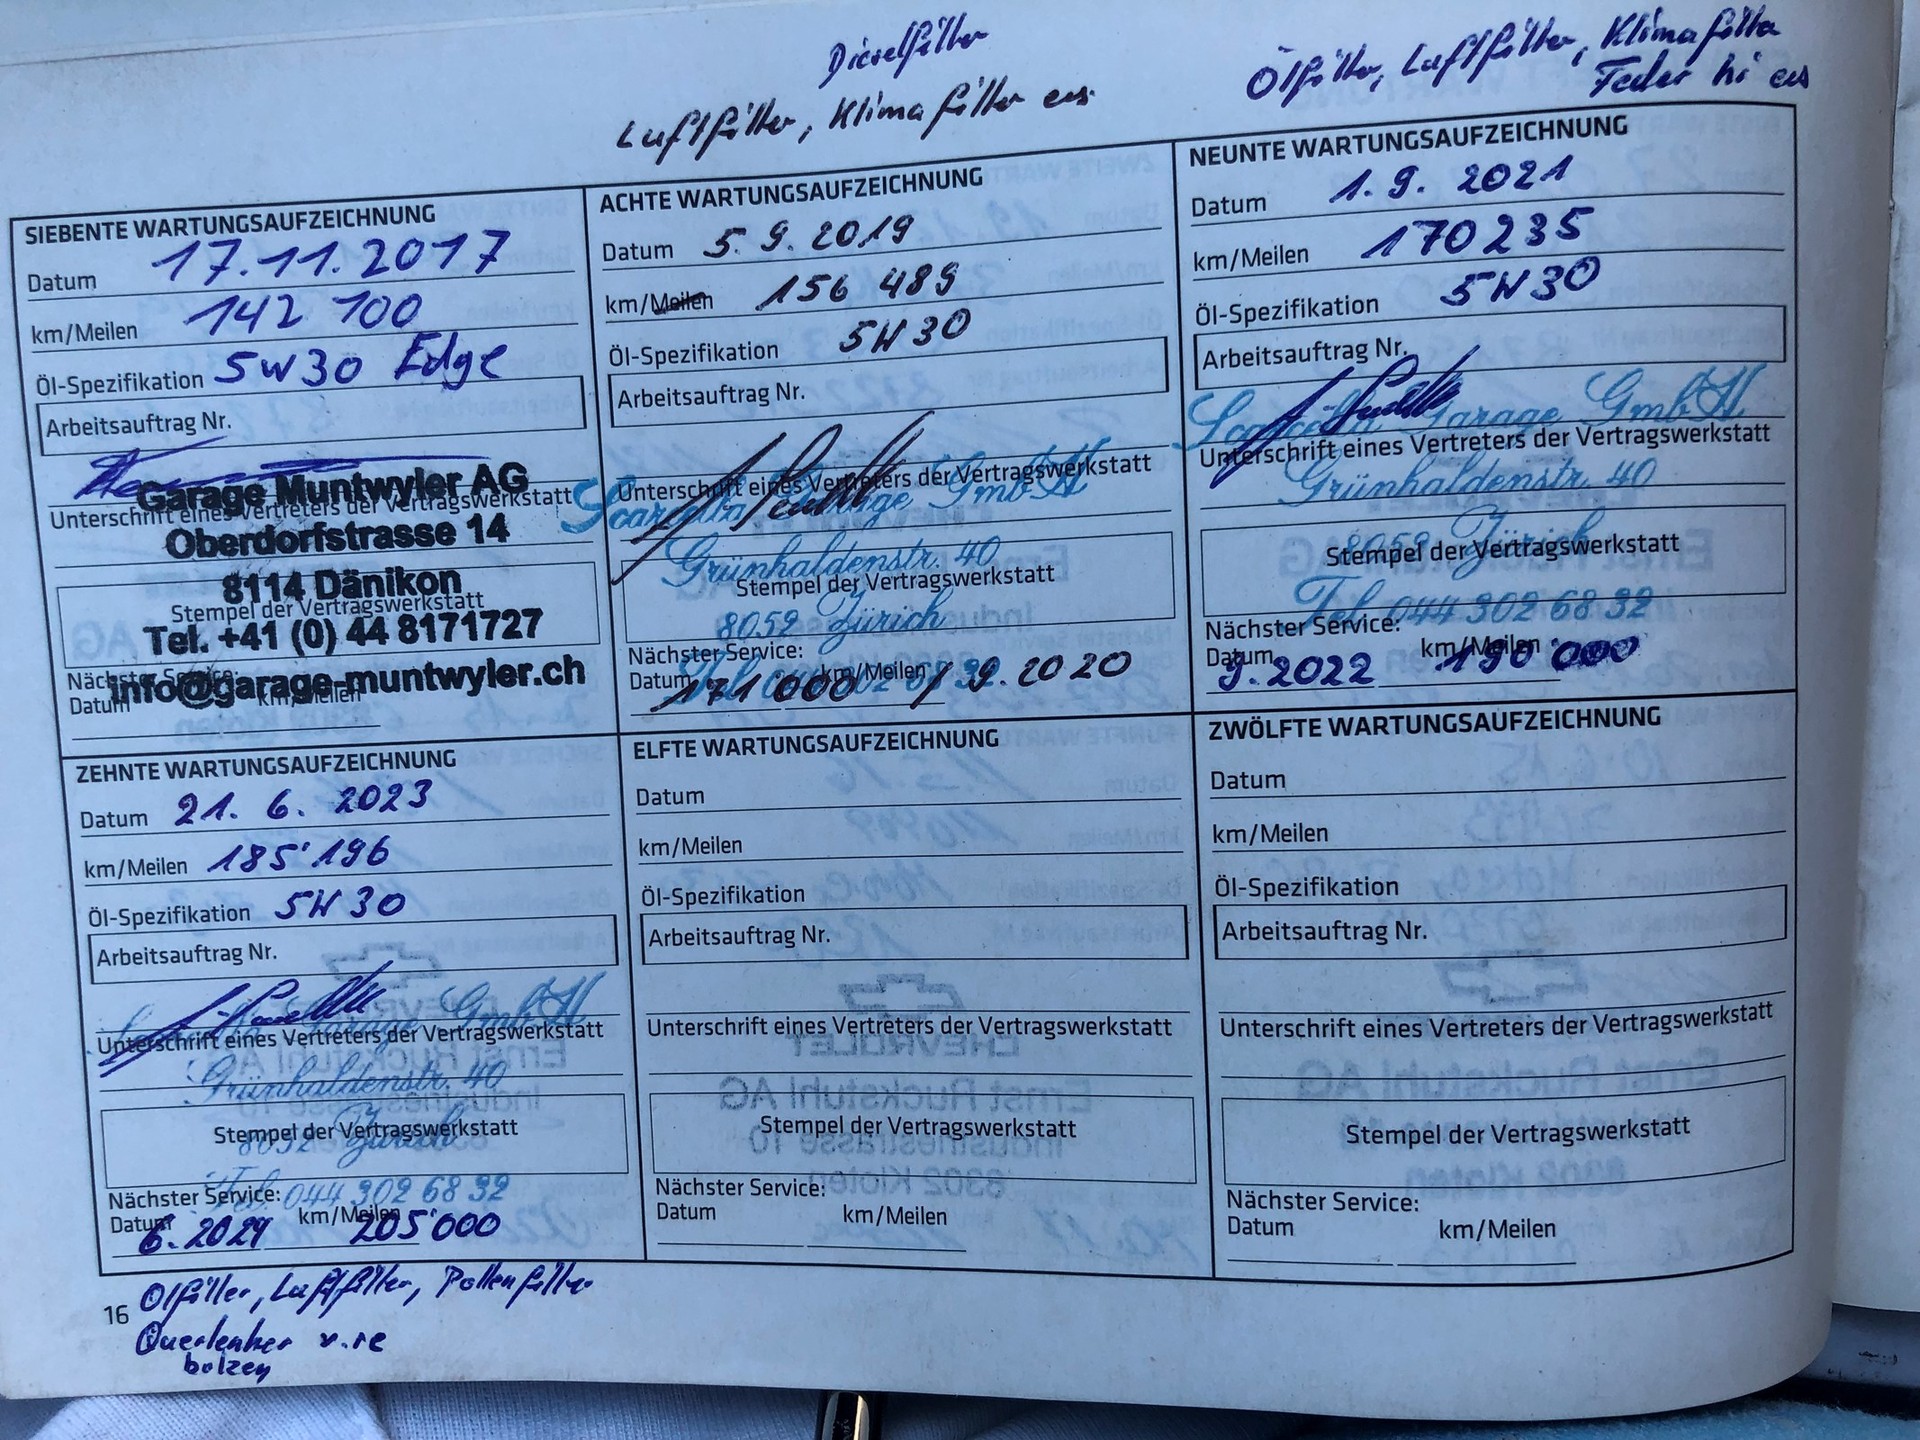 Dieselfilter
Luftfilter, Klimafilter ers.
Ölfilter, Luftfilter, Klimafilter
Feder hi ers
SIEBENTE WARTUNGSAUFZEICHNUNG
Datum 17.11.2017
km/Meilen 142 100
Öl-Spezifikation 5W30 Edge
Arbeitsauftrag Nr.
Garage Muntwyler AG
Unterschrift eines Vertreters der Vertragswerkstatt
Oberdorfstrasse 14
8114 Dänikon
Stempel der Vertragswerkstatt
Tel. +41 (0) 44 8171727
Nächster Service:
info@garage-muntwyler.ch
Datum km/Meilen
ACHTE WARTUNGSAUFZEICHNUNG
Datum 5.9.2019
km/Meilen 156 489
Öl-Spezifikation 5W30
Arbeitsauftrag Nr.
Unterschrift eines Vertreters der Vertragswerkstatt
Garage GmbH
Grünhaldenstr. 40
Stempel der Vertragswerkstatt
8052 Zürich
Nächster Service:
Tel. 044 302 68 32
Datum km/Meilen
171 000 / 9.2020
NEUNTE WARTUNGSAUFZEICHNUNG
Datum 1.9.2021
km/Meilen 170235
Öl-Spezifikation 5W30
Arbeitsauftrag Nr.
Garage GmbH
Unterschrift eines Vertreters der Vertragswerkstatt
Grünhaldenstr. 40
8052 Zürich
Stempel der Vertragswerkstatt
Tel. 044 302 68 32
Nächster Service:
Datum km/Meilen
9.2022 190'000
ZEHNTE WARTUNGSAUFZEICHNUNG
Datum 21.6.2023
km/Meilen 185'196
Öl-Spezifikation 5W30
Arbeitsauftrag Nr.
Garage GmbH
Unterschrift eines Vertreters der Vertragswerkstatt
Grünhaldenstr. 40
Stempel der Vertragswerkstatt
8052 Zürich
Tel. 044 302 68 32
Nächster Service:
Datum km/Meilen
6.2024 205'000
ELFTE WARTUNGSAUFZEICHNUNG
Datum
km/Meilen
Öl-Spezifikation
Arbeitsauftrag Nr.
Unterschrift eines Vertreters der Vertragswerkstatt
Stempel der Vertragswerkstatt
Nächster Service:
Datum km/Meilen
ZWÖLFTE WARTUNGSAUFZEICHNUNG
Datum
km/Meilen
Öl-Spezifikation
Arbeitsauftrag Nr.
Unterschrift eines Vertreters der Vertragswerkstatt
Stempel der Vertragswerkstatt
Nächster Service:
Datum km/Meilen
16
Ölfilter, Luftfilter, Pollenfilter
Querlenker v.re
bolzen